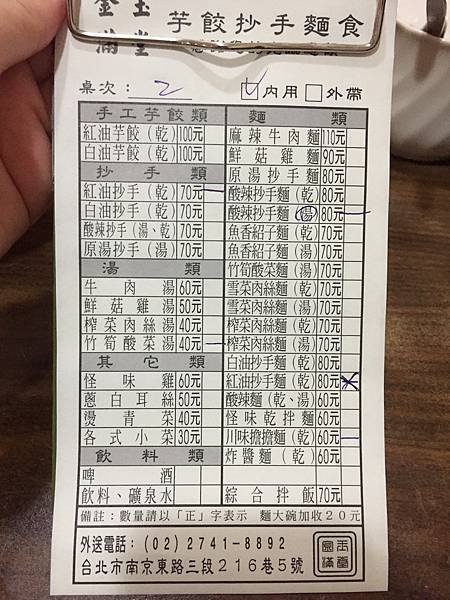 金玉滿堂 芋餃抄手麵食
桌次: 2 ☑內用 □外帶
手工芋餃類
紅油芋餃(乾) 100元
白油芋餃(乾) 100元
抄手類
紅油抄手(乾) 70元 一
白油抄手(乾) 70元
酸辣抄手(湯、乾) 70元
原湯抄手(湯) 70元
湯類
牛肉湯 60元
鮮菇雞湯 50元
榨菜肉絲湯 40元
竹筍酸菜湯 40元 一
其它類
怪味雞 60元
蔥白耳絲 50元
燙青菜 40元
各式小菜 30元
飲料類
啤酒
飲料、礦泉水
麵類
麻辣牛肉麵 110元
鮮菇雞麵 90元
原湯抄手麵 80元
酸辣抄手麵(乾) 80元
酸辣抄手麵(湯) 80元 一
魚香紹子麵(乾) 70元
魚香紹子麵(湯) 70元
竹筍酸菜麵(湯) 70元
雪菜肉絲麵(乾) 70元
雪菜肉絲麵(湯) 70元
榨菜肉絲麵(乾) 70元
榨菜肉絲麵(湯) 70元
白油抄手麵(乾) 80元
紅油抄手麵(乾) 80元
酸辣麵(乾、湯) 60元
怪味乾拌麵 60元
川味擔擔麵(乾) 60元 一
炸醬麵(乾) 60元
綜合拌飯 70元
備註:數量請以「正」字表示 麵大碗加收20元
外送電話:(02)2741-8892
台北市南京東路三段216巷5號
金玉滿堂